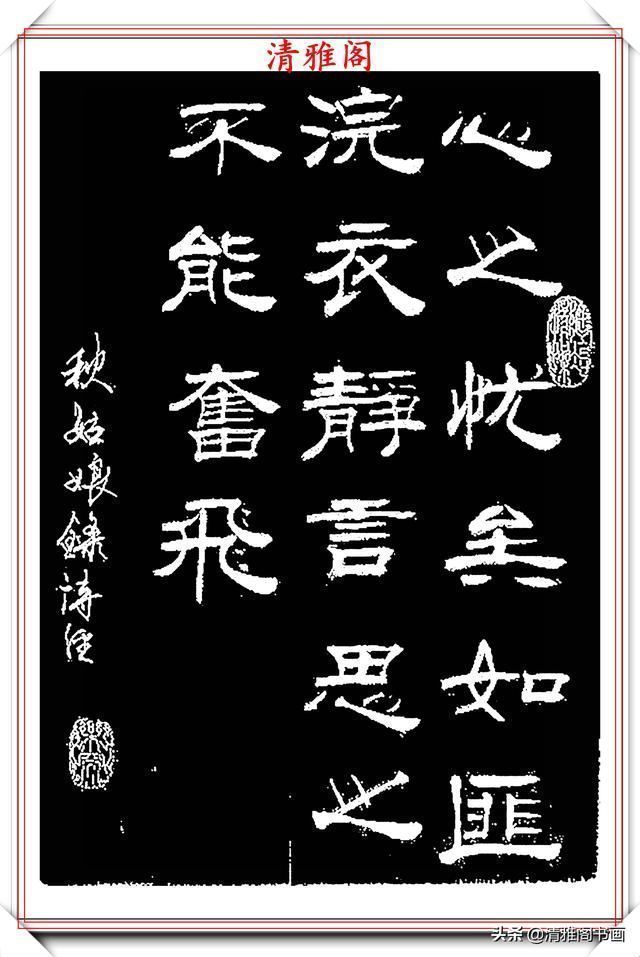 清雅阁
心之忧矣如匪
浣衣靜言思之
不能奮飛
秋姑娘錄诗经
头条@清雅阁书画